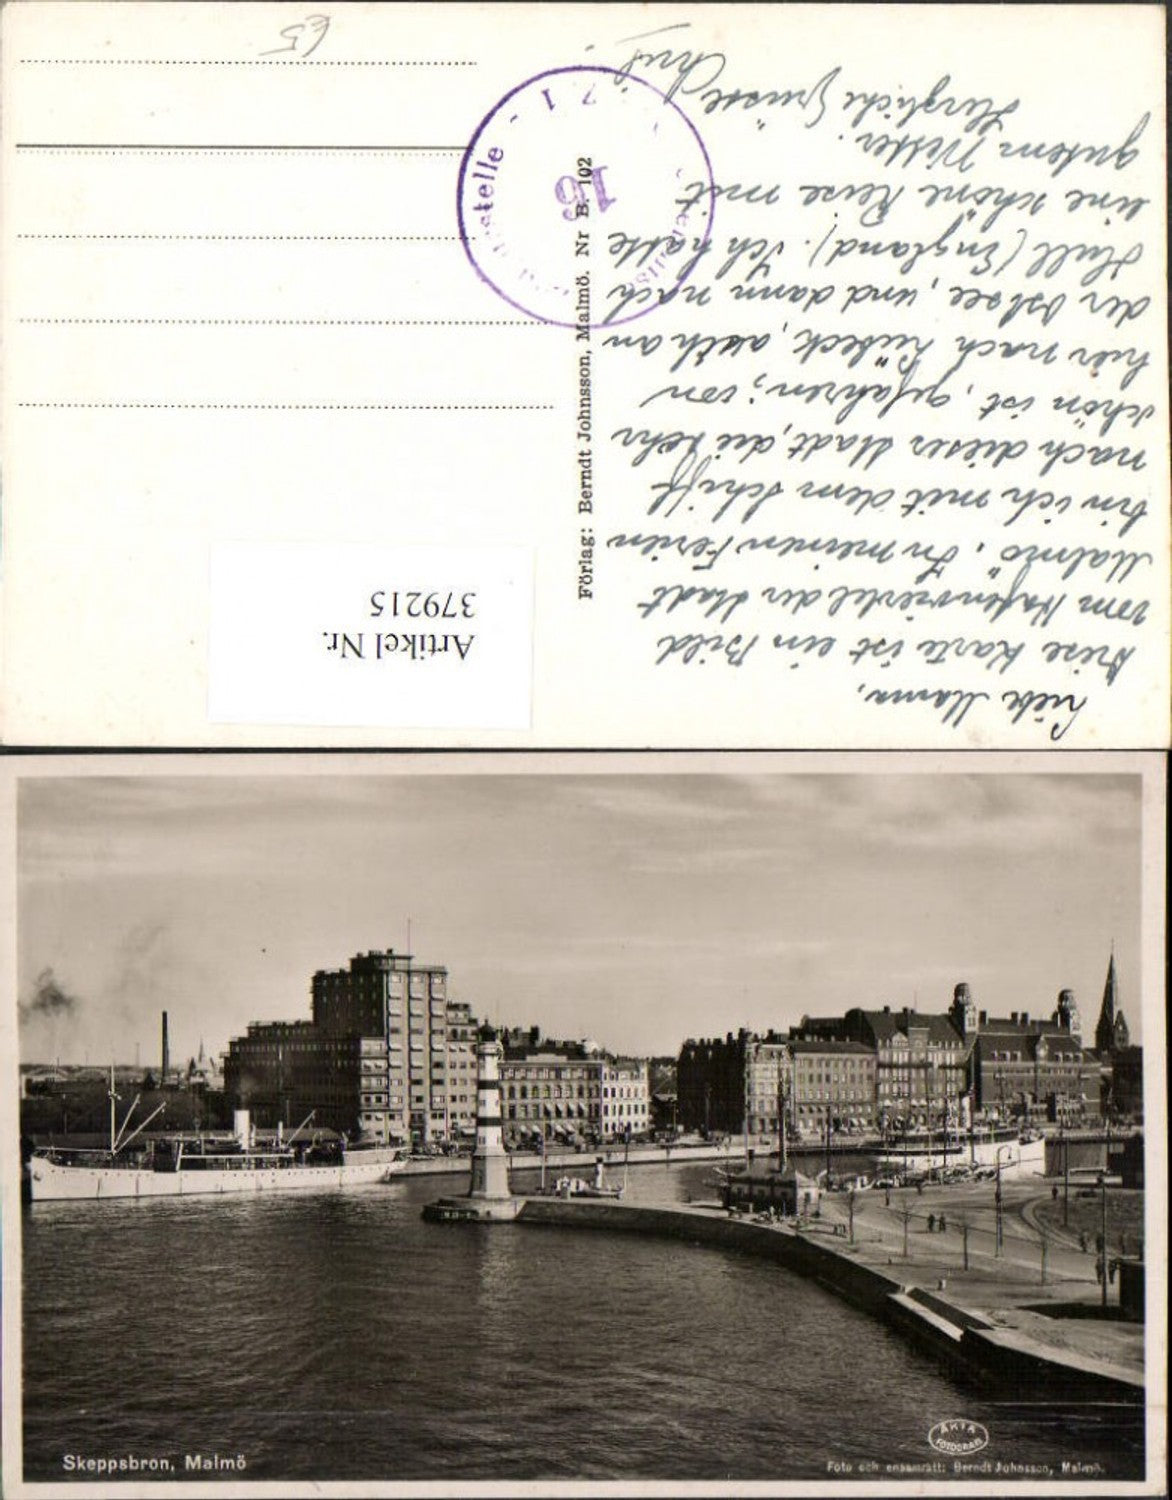 Liebe Mama,
Diese Karte ist ein Bild
vom Hafenviertel der Stadt
Malmö. In meinen Ferien
bin ich mit dem Schiff
nach dieser Stadt, die sehr
schön ist, gefahren; von
hier nach Lübeck, auch an
der Ostsee, und dann nach
Hull (England). Ich hatte
eine schöne Reise mit
gutem Wetter.
Herzliche Grüsse
Förlag: Berndt Johnsson, Malmö. Nr B. 102
Artikel Nr.
379215
16
271
£5
Skeppsbron, Malmö
ÄKTA
FOTOGRAFI
Foto och ensamrätt: Berndt Johnsson, Malmö.